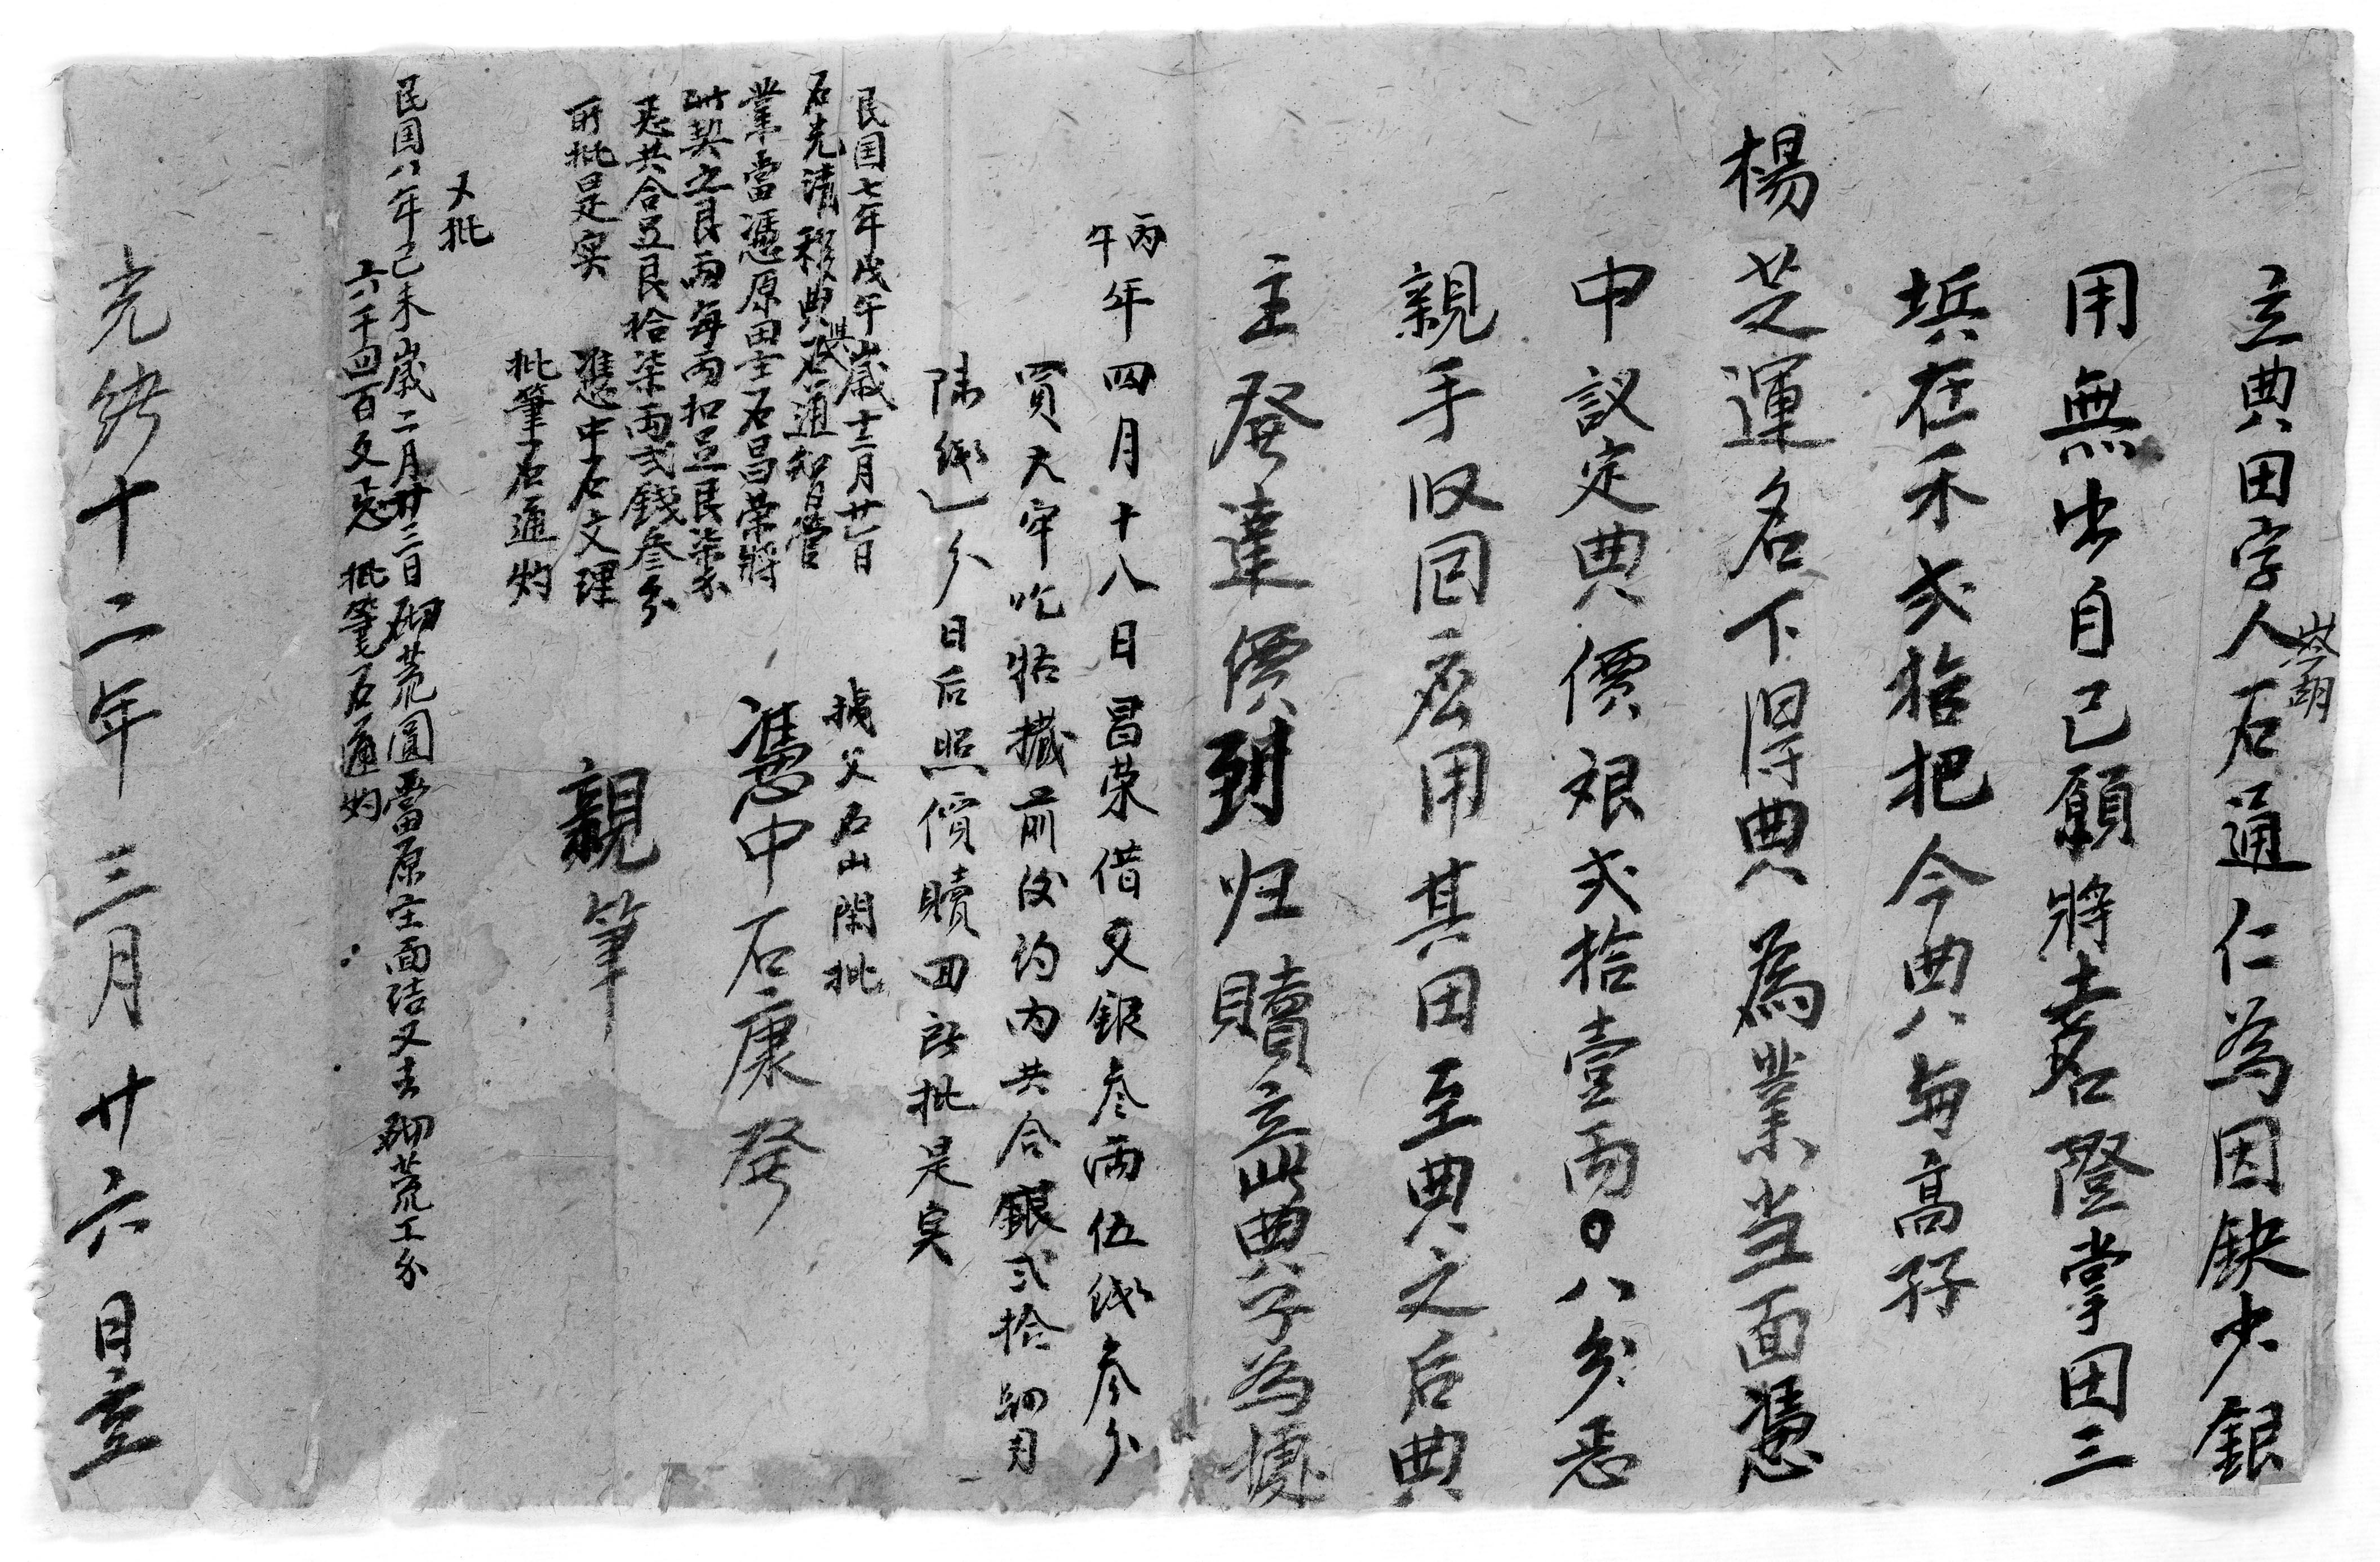 立典田字人石通仁為因缺少銀
岑胡
用無出自己願將名隥掌田三
坵在禾弍拾把今典与高孖
楊芝運名下得典為業当面憑
中議定典價艮弍拾壹両〇八分㤅
親手収回应用其田至典之后典
主發達價到归贖立此典字為據
丙午年四月十八日昌荣借文銀叁両伍錢叁分
買大牢吃牯臓前後约内共合銀弍拾
錢一分日后照價贖回所批是实
據父石山閑批
憑中石康發
親筆
民国七年戊午歲十二月廿一日
石光清移典與石通智管
業當憑原田主石昌荣將
此契之艮両每両扣足艮柒
㤅共合足艮拾柒両弍錢叁分
所批是实 憑中石文理
批筆石通灼
又批
民国八年己未歲二月廿三日砌荒圓當原主面结又去砌荒工分
六千四百文㤅 批筆石通灼
光绪十二年三月廿六日立